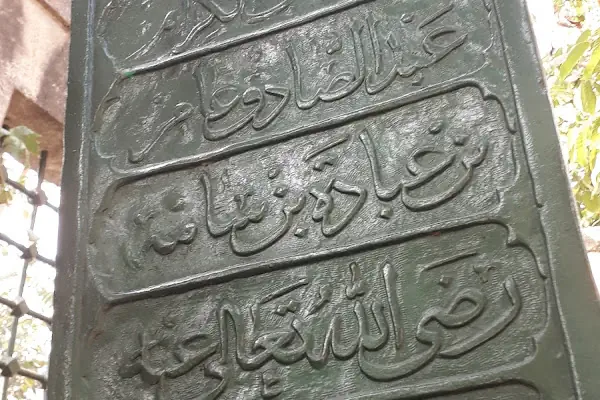 الكرام
عبد الصادق عامر
بن عبادة بن سامة
رضى الله تعالى عنه